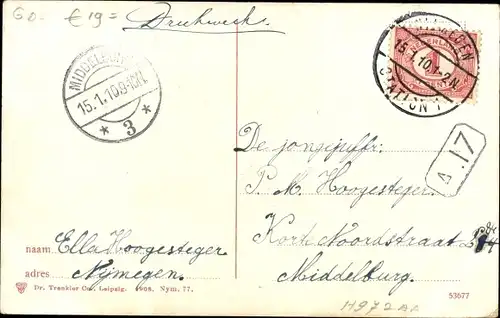 GD- € 19=
Drukwerk
MIDDELBURG
15.1.10.9-10N.
* 3 *
NEDERLAND
1
15.1.10.1-2N.
STATION
De jongejuffr:
P. M. Hoogesteger
Korte Noordstraat
Middelburg.
A.17
naam Ella Hoogesteger
adres Nijmegen.
Dr. Trenkler Co., Leipzig. 1908. Nym. 77.
53677